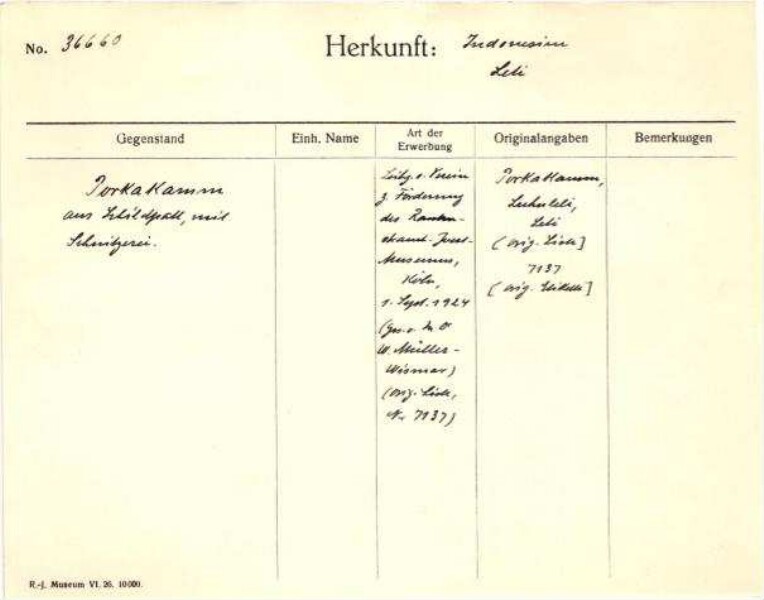 No. 36660
Herkunft: Indonesien
Leti
Gegenstand
Einh. Name
Art der
Erwerbung
Originalangaben
Bemerkungen
Porkakamm
aus Schildpatt, mit
Schnitzerei.
Leihg. v. Verein
z. Förderung
des Rauten-
strauch-Joest-
Museums,
Köln,
1. Sept. 1924
(Ges. v.
W. Müller-
Wismar)
(orig. Liste,
Nr. 7137)
Porkakamm,
Luhuleli,
Leti
(orig. Liste]
7137
(orig. Etikette]
R.-J. Museum VI. 26. 10000.